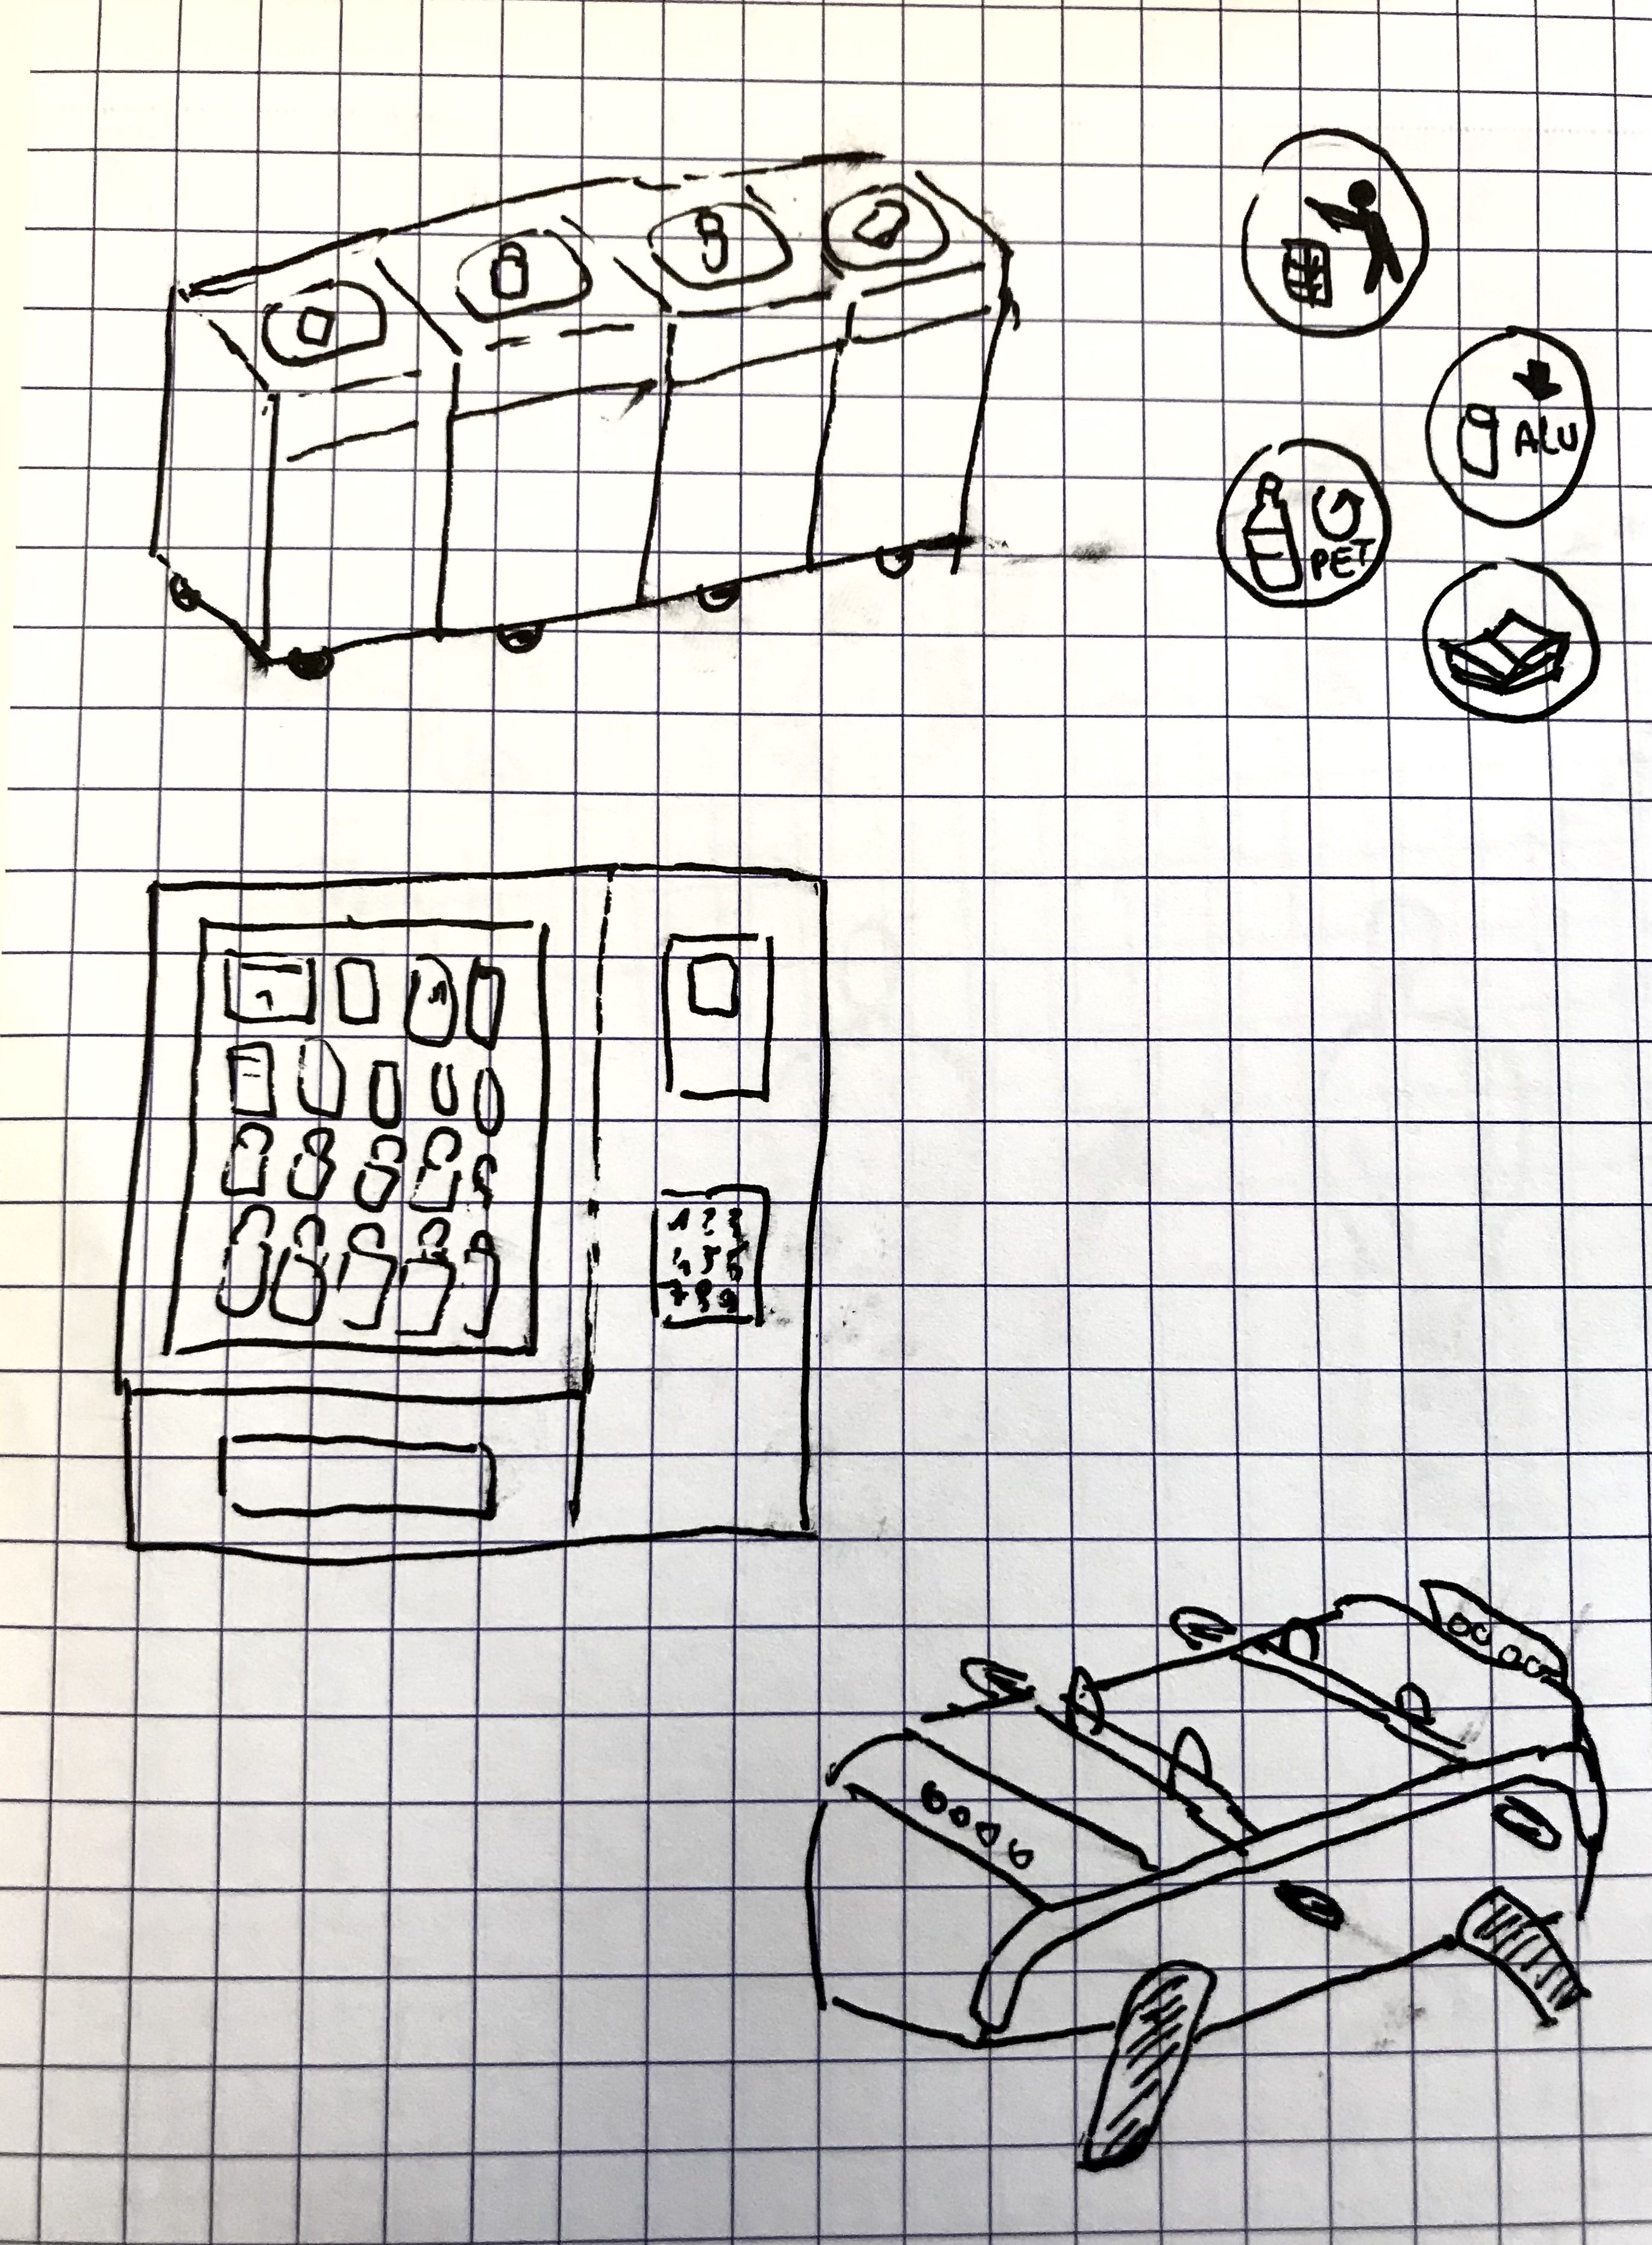 ALU
PET
1 2 3
4 5 6
7 8 9